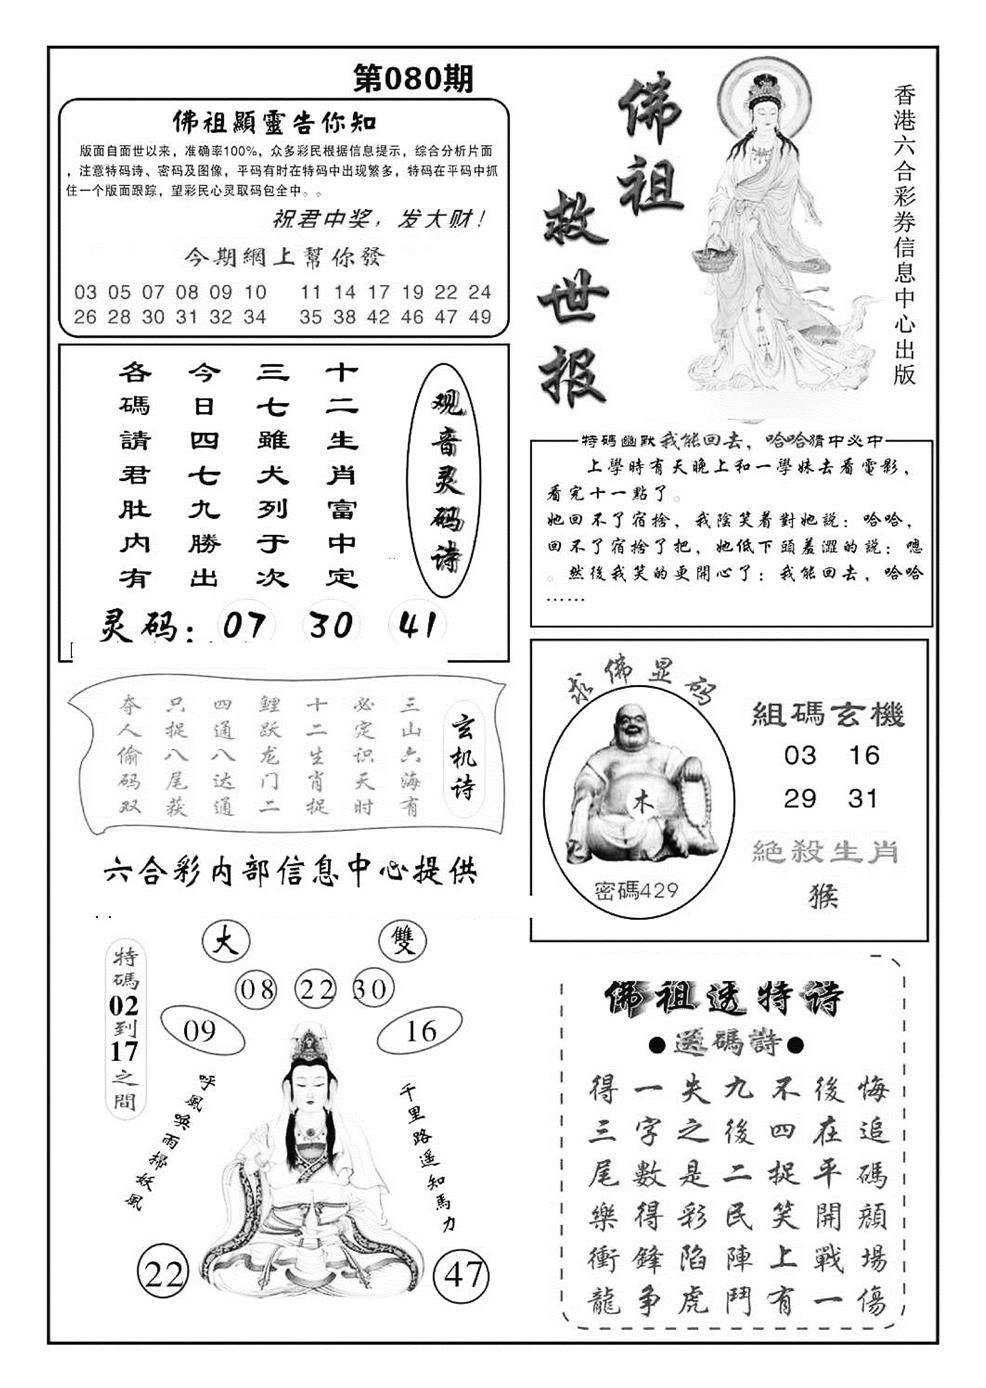 第080期
佛祖顯靈告你知
版面自面世以来，准确率100%，众多彩民根据信息提示，综合分析片面
，注意特码诗、密码及图像，平码有时在特码中出现繁多，特码在平码中抓
住一个版面跟踪，望彩民心灵取码包全中。。
祝君中奖，发大财！
今期網上幫你發
03 05 07 08 09 10 11 14 17 19 22 24
26 28 30 31 32 34 35 38 42 46 47 49
佛祖
救世报
香港六合彩券信息中心出版
观音灵码诗
十二生肖富中定
三七雖犬列于次
今日四七九勝出
各碼請君肚内有
灵码：07 30 41
特碼幽默我能回去，哈哈猜中必中
上學時有天晚上和一學妹去看電影，
看完十一點了。
她回不了宿捨，我陰笑着對她説：哈哈，
回不了宿捨了把，她低下頭羞澀的説：嗯
。然後我笑的更開心了；我能回去，哈哈
……
玄机诗
三山六海有
必定识天时
十二生肖捉
鲤跃龙门二
四通八达通
只捉八尾获
夺人偷码双
六合彩内部信息中心提供
求佛显码
木
密碼429
組碼玄機
03 16
29 31
絕殺生肖
猴
大 雙
08 22 30
09 16
特碼02到17之間
呼風喚雨掃妖風
千里路遥知馬力
22 47
佛祖透特诗
●透碼詩●
得一失九不後悔
三字之後四在追
尾數是二捉平碼
樂得彩民笑開顔
衝鋒陷陣上戰場
龍争虎鬥有一傷